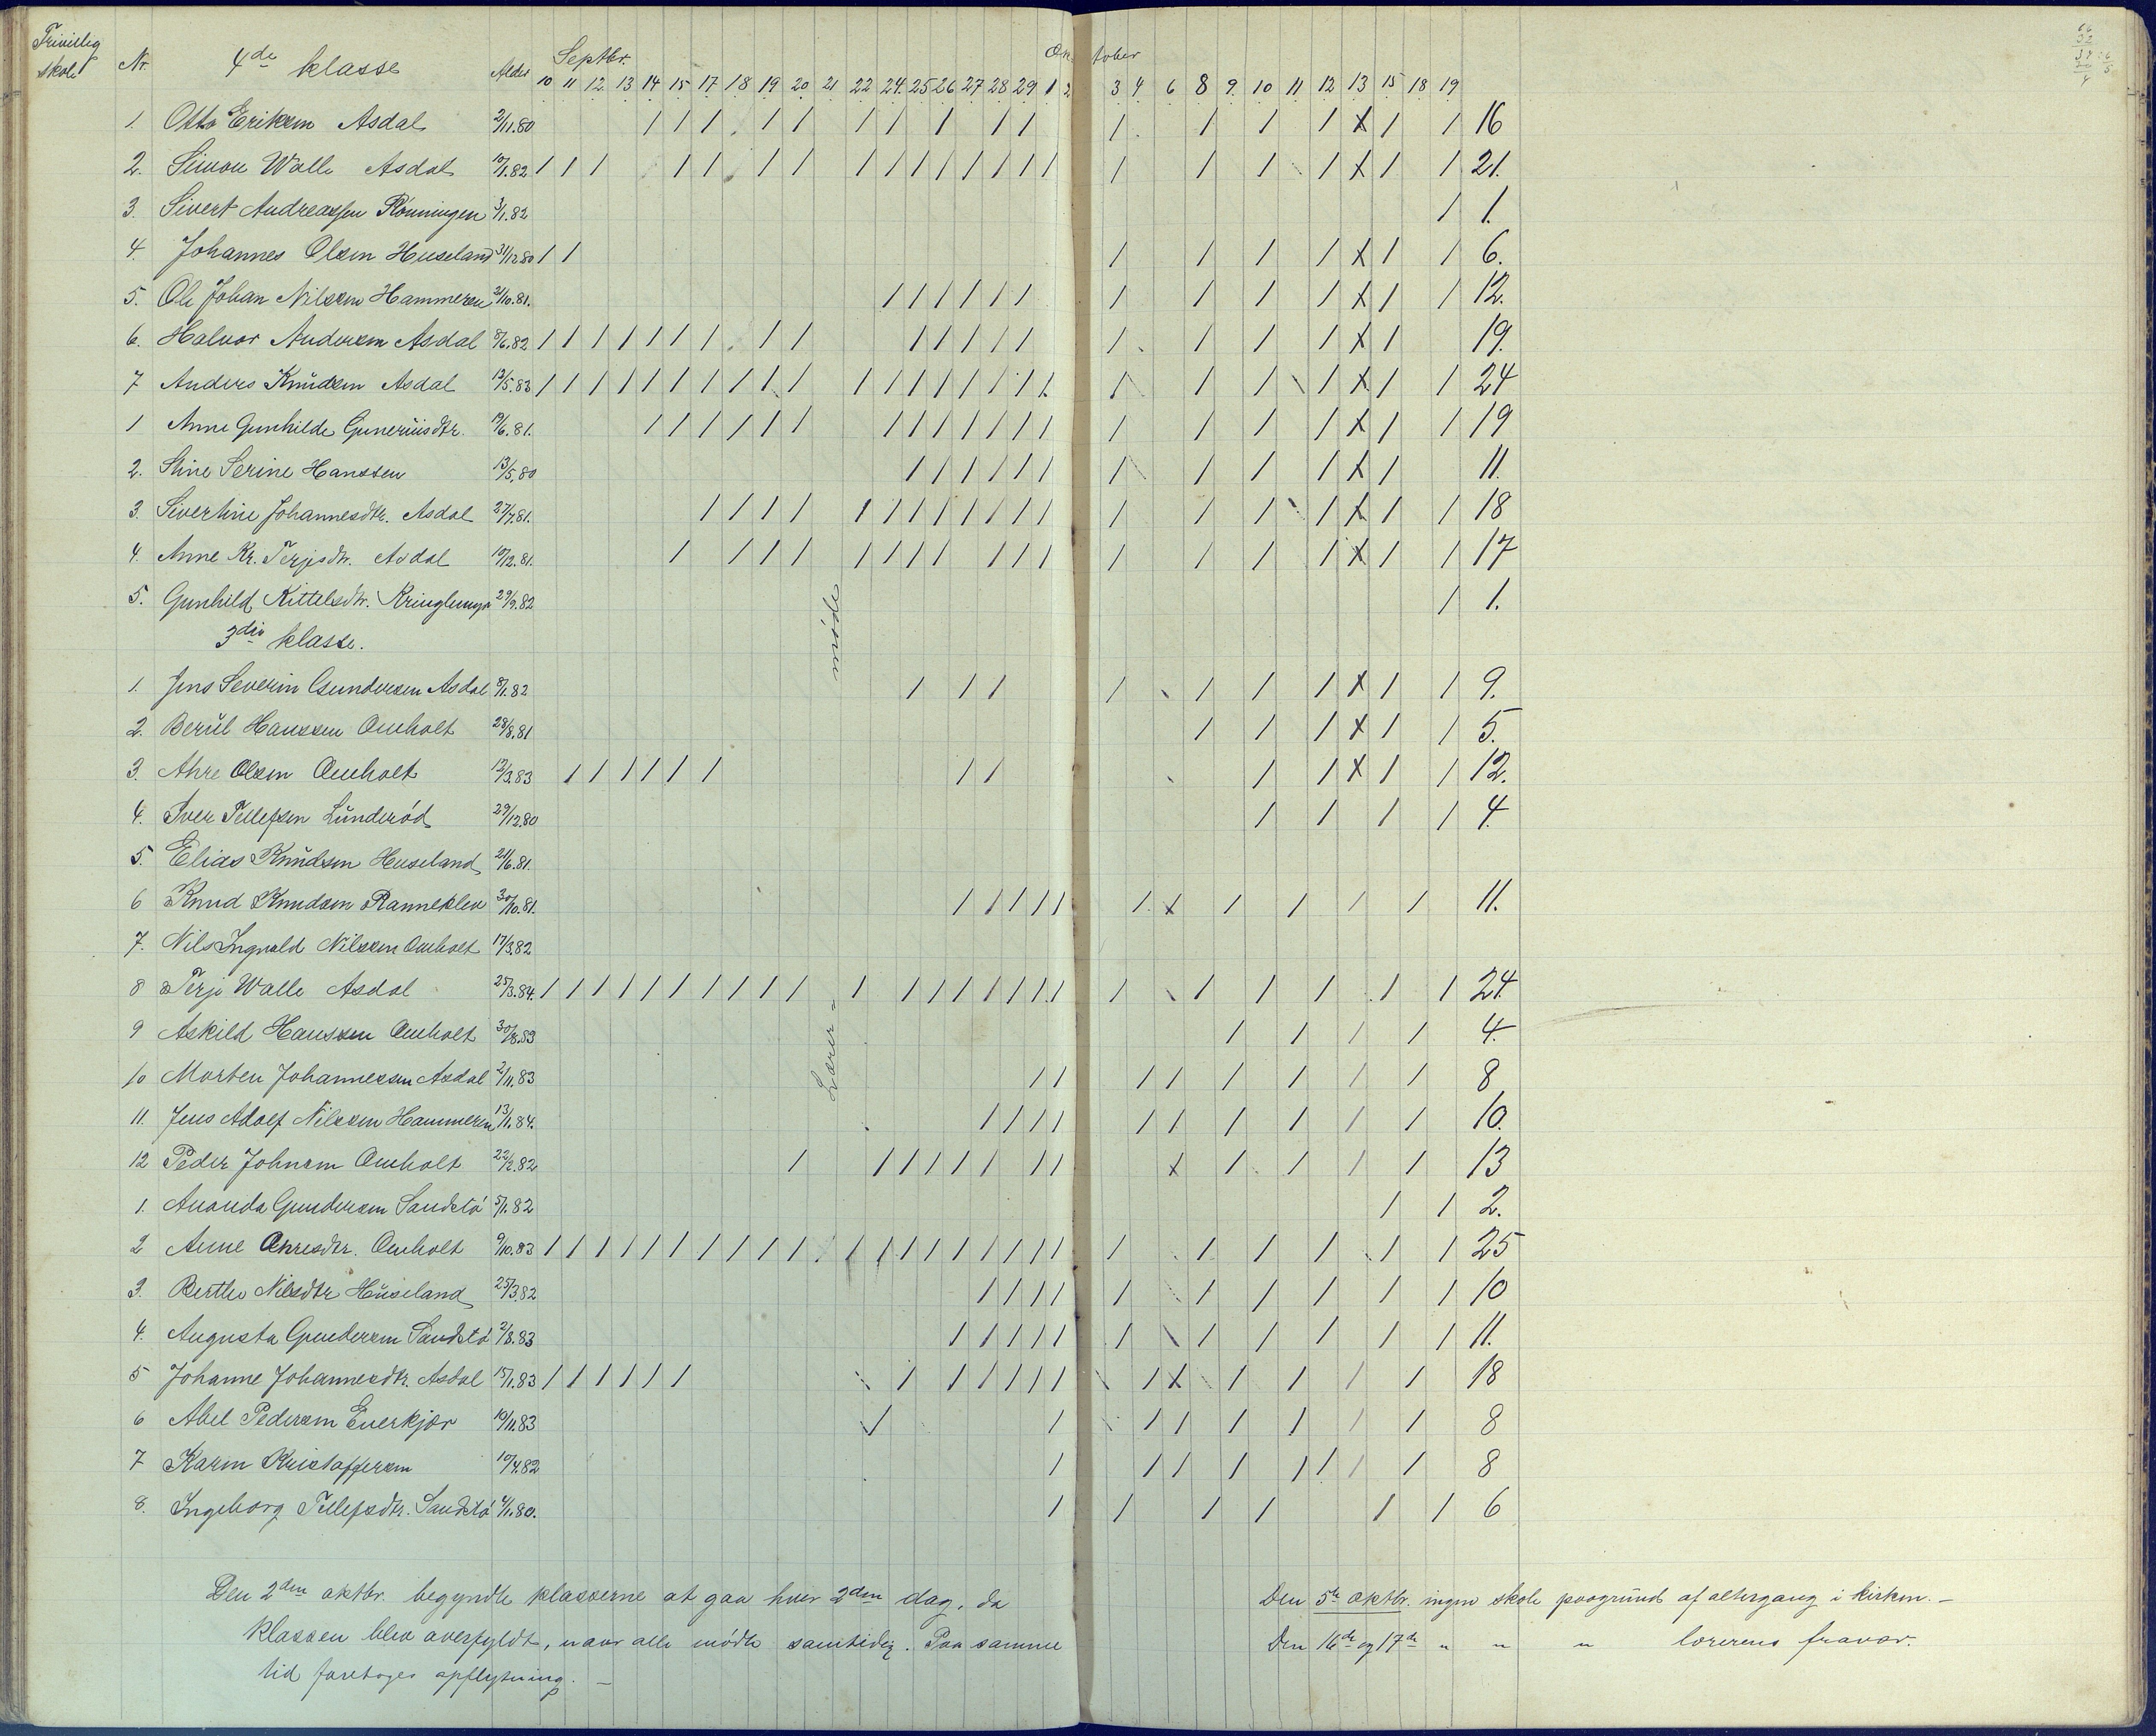 Frivillig skole
Nr. 4de klasse Alder Septbr. Oktober
10 11 12 13 14 15 17 18 19 20 21 22 24 25 26 27 28 29 1 2 3 4 6 8 9 10 11 12 13 15 18 19
1. Otto Eriksen Asdal 2/11.80 / / / / / / / / / / / / / / X / / 16
2. Simon Walle Asdal 10/1.82 / / / / / / / / / / / / / / / / / / / X / / 21.
3. Sivert Andreassen Rønningen 3/1.82 / 1.
4. Johannes Olsen Huseland 31/12.80 / / / / / / X / / 6.
5. Ole Johan Nilssen Hammeren 31/10.81. / / / / / / / / / / X / / 12.
6. Halvor Andersen Asdal 8/6.82 / / / / / / / / / / / / / / / / / / X / 19.
7 Anders Knudsen Asdal 12/5.83 / / / / / / / / / / / / / / / / / / / / / / X / / 24
1 Anne Gunhilde Guneriusdtr. 19/6.81. / / / / / / / / / / / / / / / / / X / / 19
2. Stine Serine Hanssen 13/5.80 / / / / / / / / / / X / 11.
3. Sivertine Johannesdtr. Asdal 27/7.81. / / / / / / / / / / / / / / / / X / / 18
4. Anne Kr. Terjesdtr. Asdal 10/12.81. / / / / / / / / / / / / / / / X / / 17
5. Gunhild Kittelsdtr. Kringlemyr 29/9.82 / 1.
3die klasse.
1. Jens Severin Gundersen Asdal 8/1.82 / / / / / / / X / / 9.
2. Berul Hanssen Omholt 28/8.81 / / / X / / 5.
3. Ahre Olsen Omholt 12/3.83 / / / / / / / / / / X / / 12.
4. Iver Tellefsen Lunderød 29/12.80 / / / / 4.
5. Elias Knudsen Huseland 21/6.81.
6 Knud Knudsen Ranneklev 30/10.81. / / / / / / X / / / / 11.
7. Nils Ingvald Nilssen Omholt 17/3.82
8 Terje Walle Asdal 25/3.84. / / / / / / / / / / / / / / / / / / / / / / / / 24.
9 Askild Hanssen Omholt 30/8.83 / / / / 4.
10 Morten Johannessen Asdal 2/11.83 / / / / / / / / 8
11. Jens Adolf Nilssen Hammeren 13/1.84. / / / / / / / / / / 10.
12 Peder Johnsen Omholt 22/2.82 / / / / / / / / X / / / / 13
1. Ananda Gundersen Sandstø 5/1.82 / / 2.
2 Anne Ahresdtr. Omholt 9/10.83 / / / / / / / / / / / / / / / / / / / / / / / / / 25
3. Berthe Nilsdtr Huseland 25/3.82 / / / / / / / / / / 10
4. Augusta Gundersen Sandstø 2/8.83 / / / / / / / / / / / 11.
5 Johanne Johannesdtr. Asdal 15/1.83 / / / / / / / / / / / / / X / / / / 18
6 Abel Pedersen Everkjær 10/11.83 / / / / / / / / 8
7 Karen Kristoffersen 10/4.82 / / / / / / / / 8
8. Ingeborg Tellefsdtr. Sandstø 4/1.80. / / / / / / 6
Lærer-møde
Den 2den oktbr. begyndte klasserne at gaa hver 2den dag, da
klassen blev overfyldt, naar alle mødte samtidig. Paa samme
tid foretoges opflytning. —
Den 5te oktbr. ingen skole paagrund af altergang i kirken. —
Den 16de og 17de " " " lærerens fravær.